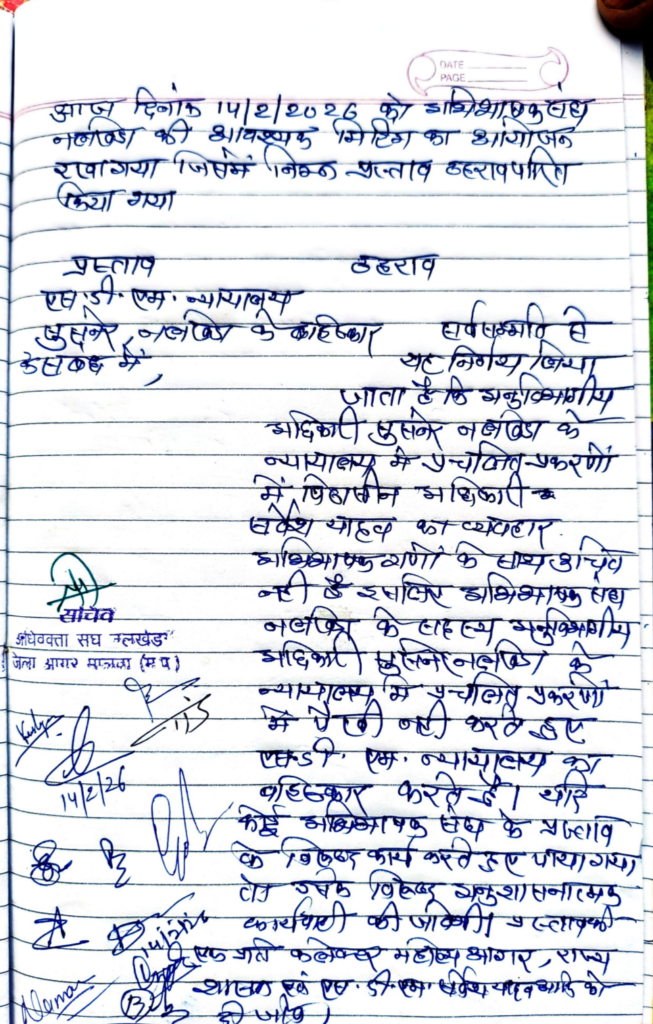 DATE
PAGE
आज दिनांक 14/2/2026 को अभिभाषक संघ
नलखेडा की आवश्यक मिटिंग का आयोजन
रखा गया जिसमें निम्न प्रस्ताव ठहराव पारित
किया गया
प्रस्ताव ठहराव
एस.डी.एम. न्यायालय
सुसनेर, नलखेडा के बहिष्कार सर्वसम्मति से
के संबंध में, यह निर्णय लिया
जाता है कि अनुविभागीय
अधिकारी सुसनेर नलखेडा के
न्यायालय में प्रचलित प्रकरणों
में पिठासीन अधिकारी
सर्वेश यादव का व्यवहार
अभिभाषक गणों के साथ उचित
नही है इसलिए अभिभाषक संघ
नलखेडा के सदस्य अनुविभागीय
अधिकारी सुसनेर नलखेडा के
न्यायालय में प्रचलित प्रकरणों
में पैरवी नही करते हुए
एस.डी. एम. न्यायालय का
बहिष्कार करते है। यदि
कोई अभिभाषक संघ के प्रस्ताव
के विरुद्ध कार्य करते हुए पाया गया
तो उसके विरुद्ध अनुशासनात्मक
कार्यवाही की जावेगी। प्रस्ताव की
एक प्रति कलेक्टर महोदय आगर, राज्य
शासन एवं एस.डी.एम. सर्वेश यादव आदि को
दी जावे।
सचिव
अधिवक्ता संघ नलखेडा
जिला आगर मालवा (म.प्र.)
14/2/26